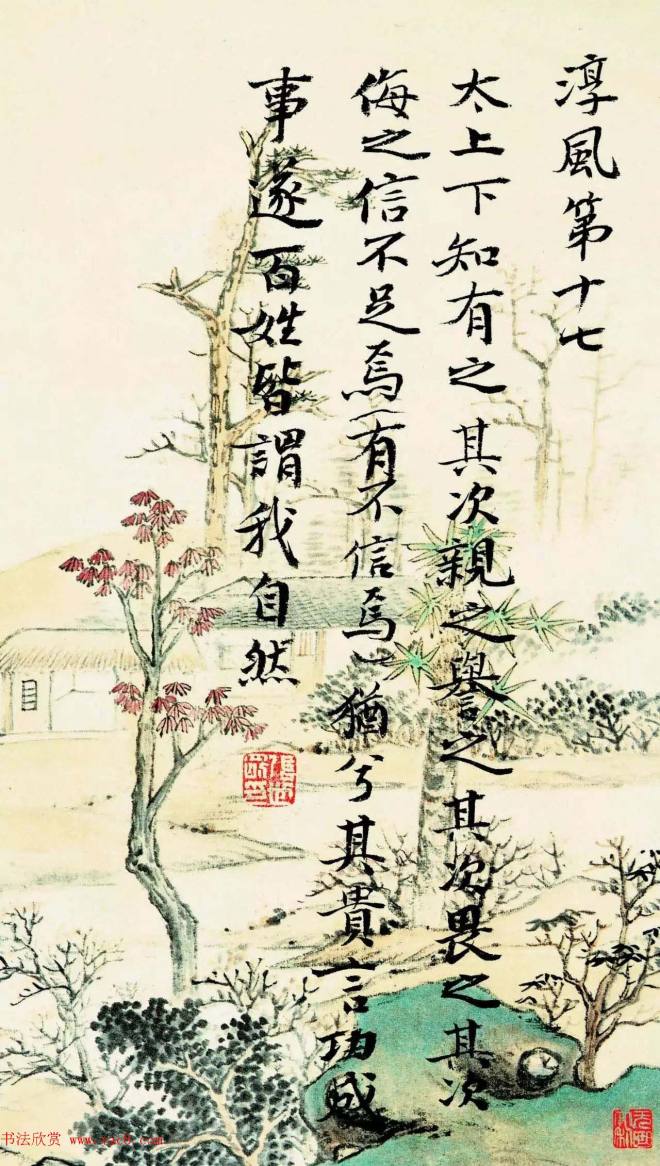 淳風第十七
太上下知有之其次親之譽之其次畏之其次
侮之信不足焉(有不信焉)猶兮其貴言功成
事遂百姓皆謂我自然
书法欣赏